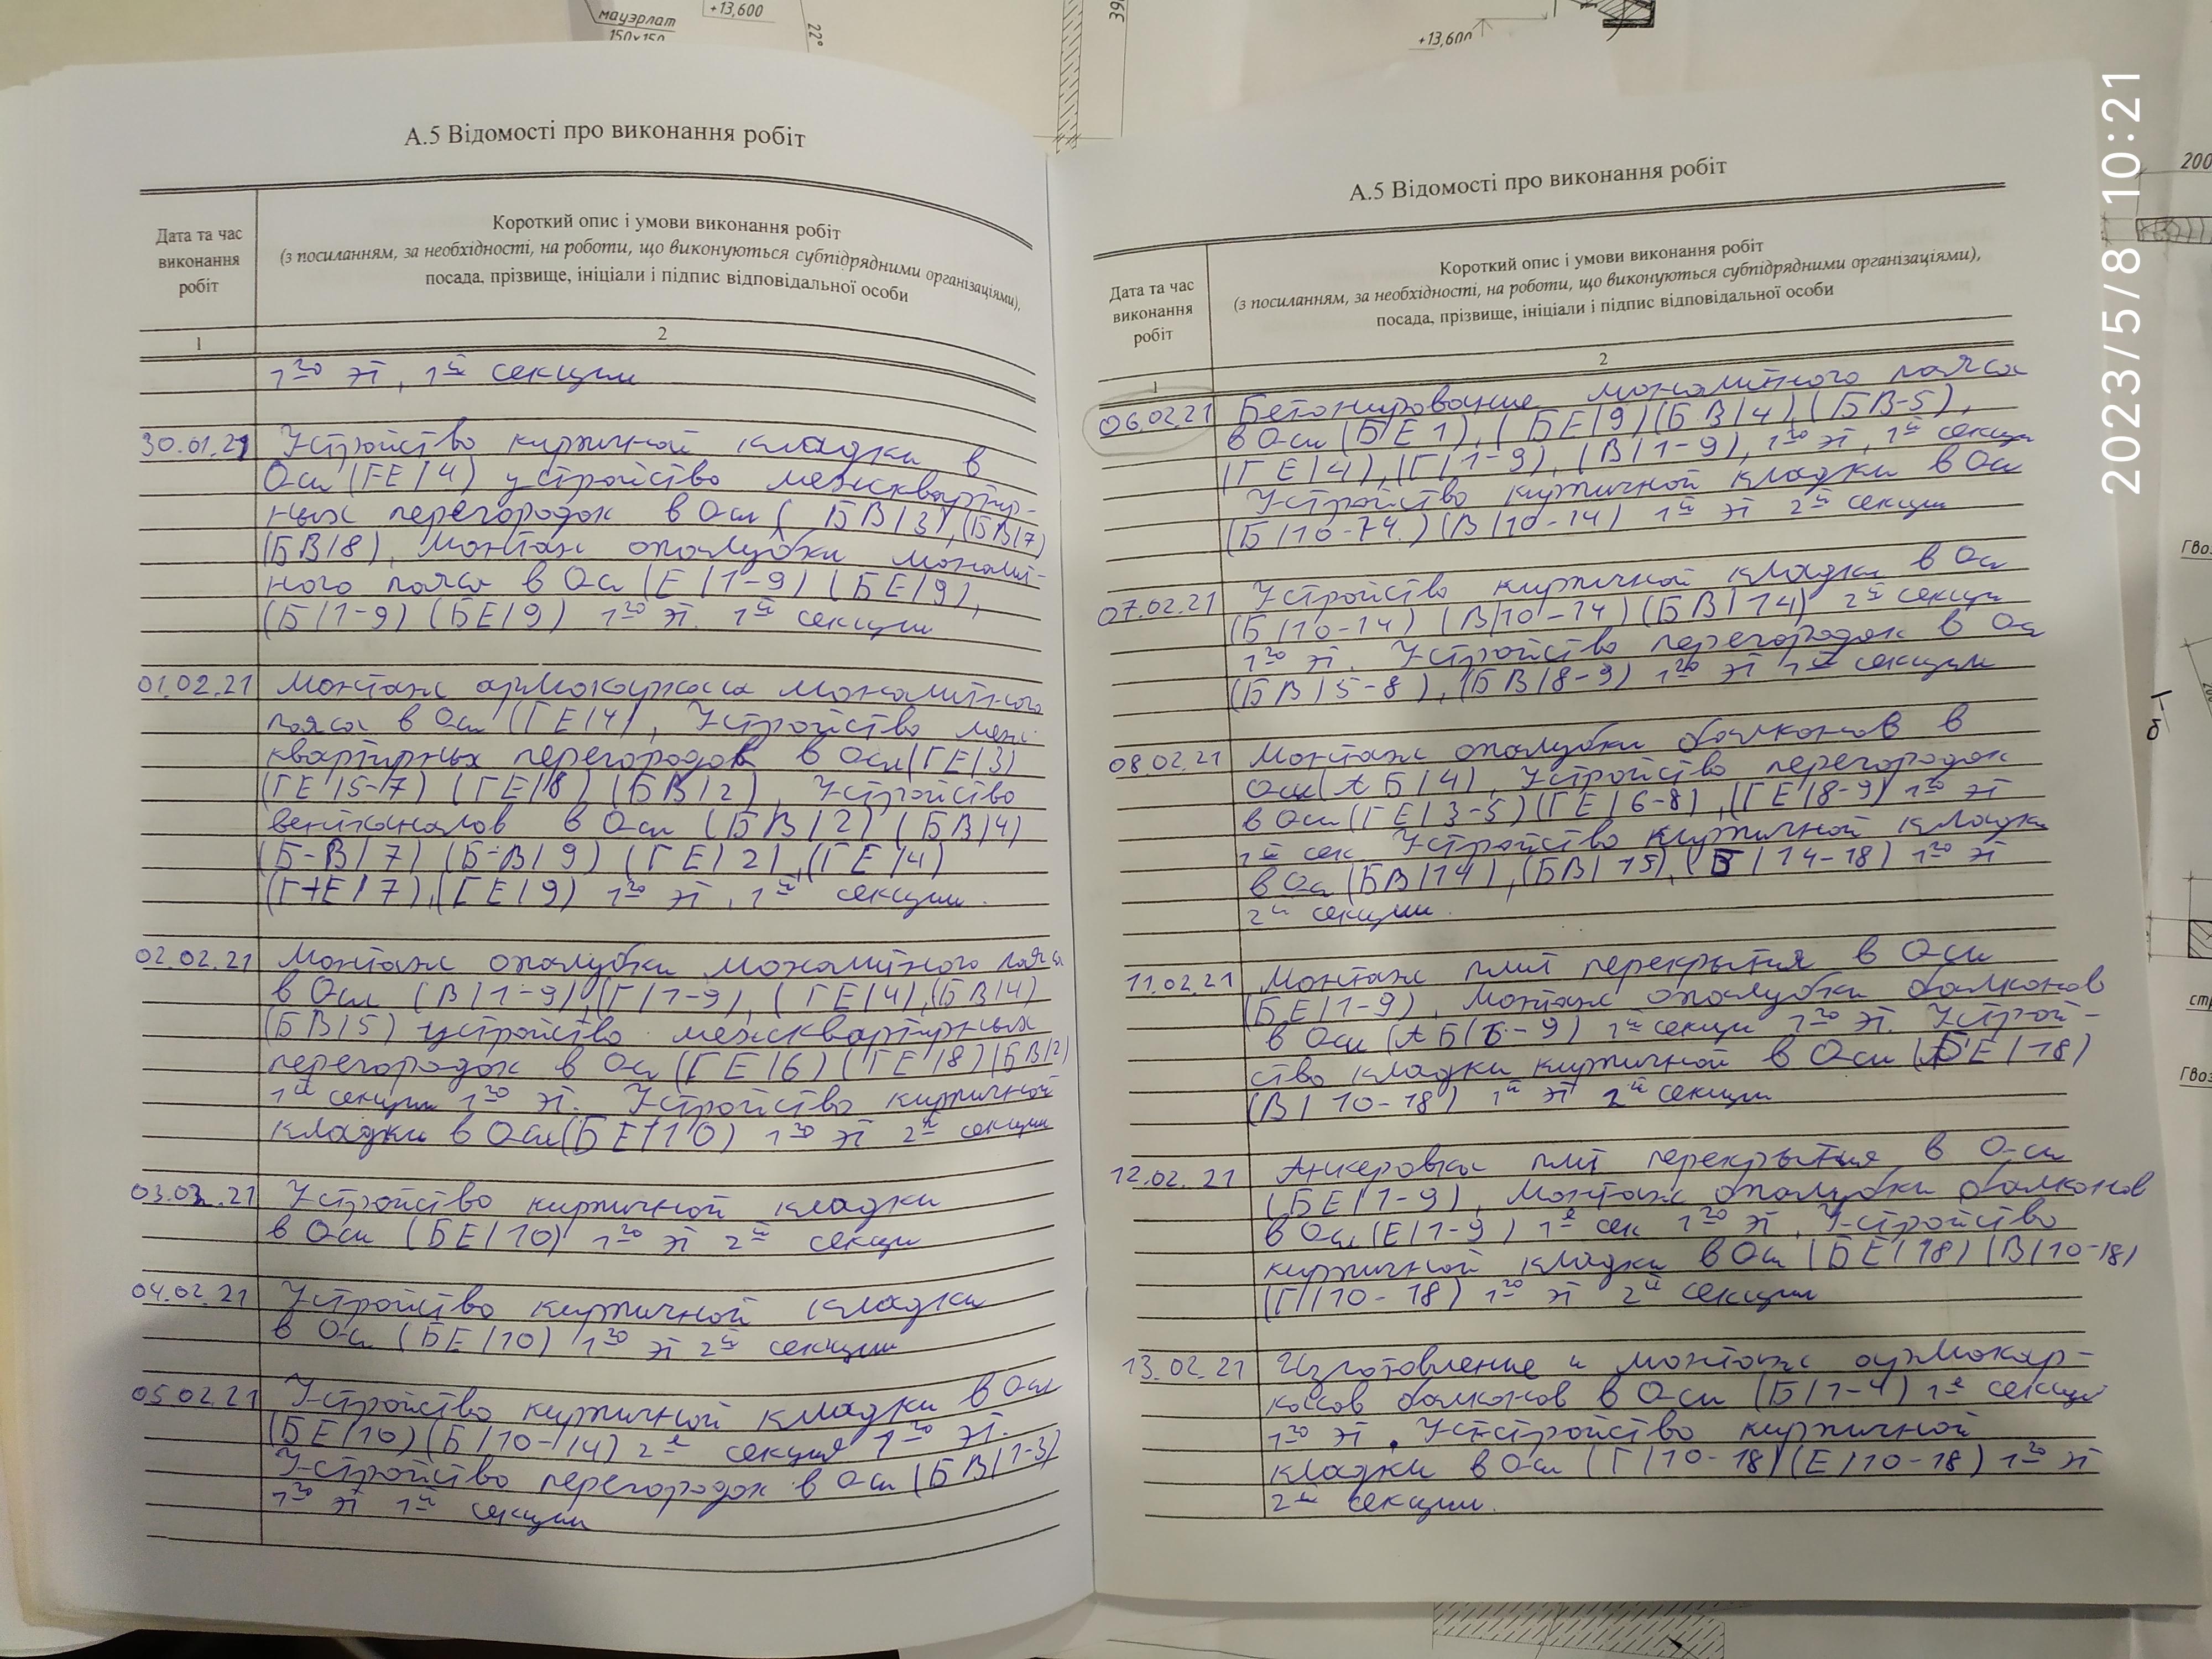 мауэрлат
150х150
+13,600
22°
+13,600
200
А.5 Відомості про виконання робіт
Дата та час
виконання
робіт
Короткий опис і умови виконання робіт
(з посиланням, за необхідності, на роботи, що виконуються субпідрядними організаціями),
посада, прізвище, ініціали і підпис відповідальної особи
1
2
1го эт, 1й секции
30.01.21 Устройство кирпичной кладки в
Оси (ГЕ/4) устройство межквартир-
ных перегородок в Оси (БВ/3), (БВ/7)
(БВ/8), Монтаж опалубки монолит-
ного пояса в Оси (Е/1-9) (БЕ/9),
(Б/1-9) (БЕ/9) 1го эт. 1й секции
01.02.21 Монтаж армокаркаса монолитного
пояса в Оси (ГЕ/4), Устройство меж
квартирных перегородок в Оси (ГЕ/3)
(ГЕ/5-7) (ГЕ/8) (БВ/2), Устройство
вентканалов в Оси (БВ/2) (БВ/4)
(Б-В/7) (Б-В/9) (ГЕ/2), (ГЕ/4)
(Г-Е/7), (ГЕ/9) 1го эт, 1й секции.
02.02.21 Монтаж опалубки монолитного пояса
в Оси (В/1-9), (Г/1-9), (ГЕ/4), (БВ/4)
(БВ/5) устройство межквартирных
перегородок в Оси (ГЕ/6) (ГЕ/8) (БВ/2)
1й секции 1го эт. Устройство кирпичной
кладки в Оси (БЕ/10) 1го эт 2й секции
03.02.21 Устройство кирпичной кладки
в Оси (БЕ/10) 1го эт 2й секци
04.02.21 Устройство кирпичной кладки
в Оси (БЕ/10) 1го эт 2й секции
05.02.21 Устройство кирпичной кладки в Оси
(БЕ/10) (Б/10-14) 2й секция 1го эт.
Устройство перегородок в Оси (БВ/1-3)
1го эт 1й секции
А.5 Відомості про виконання робіт
Дата та час
виконання
робіт
Короткий опис і умови виконання робіт
(з посиланням, за необхідності, на роботи, що виконуються субпідрядними організаціями),
посада, прізвище, ініціали і підпис відповідальної особи
1
2
06.02.21 Бетонирование монолитного пояса
в Оси (БЕ1), (БЕ/9) (БВ/4), (БВ-5),
(ГЕ/4), (Г/1-9), (В/1-9), 1го эт, 1й секции
Устройство кирпичной кладки в Оси
(Б/10-14.) (В/10-14) 1й эт 2й секции
07.02.21 Устройство кирпичной кладки в Оси
(Б/10-14) (В/10-14) (БВ/14) 2й секци
1го эт. Устройство перегородок в Оси
(БВ/5-8), (БВ/8-9) 1го эт 1й секции
08.02.21 Монтаж опалубки балконов в
Оси (АБ/4), Устройство перегородок
в Оси (ГЕ/3-5) (ГЕ/6-8), (ГЕ/8-9) 1го эт
1й сек. Устройство кирпичной кладки
в Оси (БВ/14), (БВ/15), (Б/14-18) 1го эт
2й секции.
11.02.21 Монтаж плит перекрытия в Оси
(БЕ/1-9), Монтаж опалубки балконов
в Оси (АБ/6-9) 1й секци 1го эт. Устрой-
ство кладки кирпичной в Оси (БЕ/18)
(В/10-18) 1й эт 2й секции
12.02.21 Анкеровка плит перекрытия в Оси
(БЕ/1-9), Монтаж опалубки балконов
в Оси (Е/1-9) 1й сек 1го эт, Устройство
кирпичной кладки в Оси (БЕ/18) (В/10-18)
(Г/10-18) 1го эт 2й секции
13.02.21 Изготовление и монтаж армокар-
касов балконов в Оси (Б/1-4) 1й секций
1го эт. Устройство кирпичной
кладки в Оси (Г/10-18) (Е/10-18) 1го эт
2й секции.
2023/5/8 10:21
Гво
б
Гво